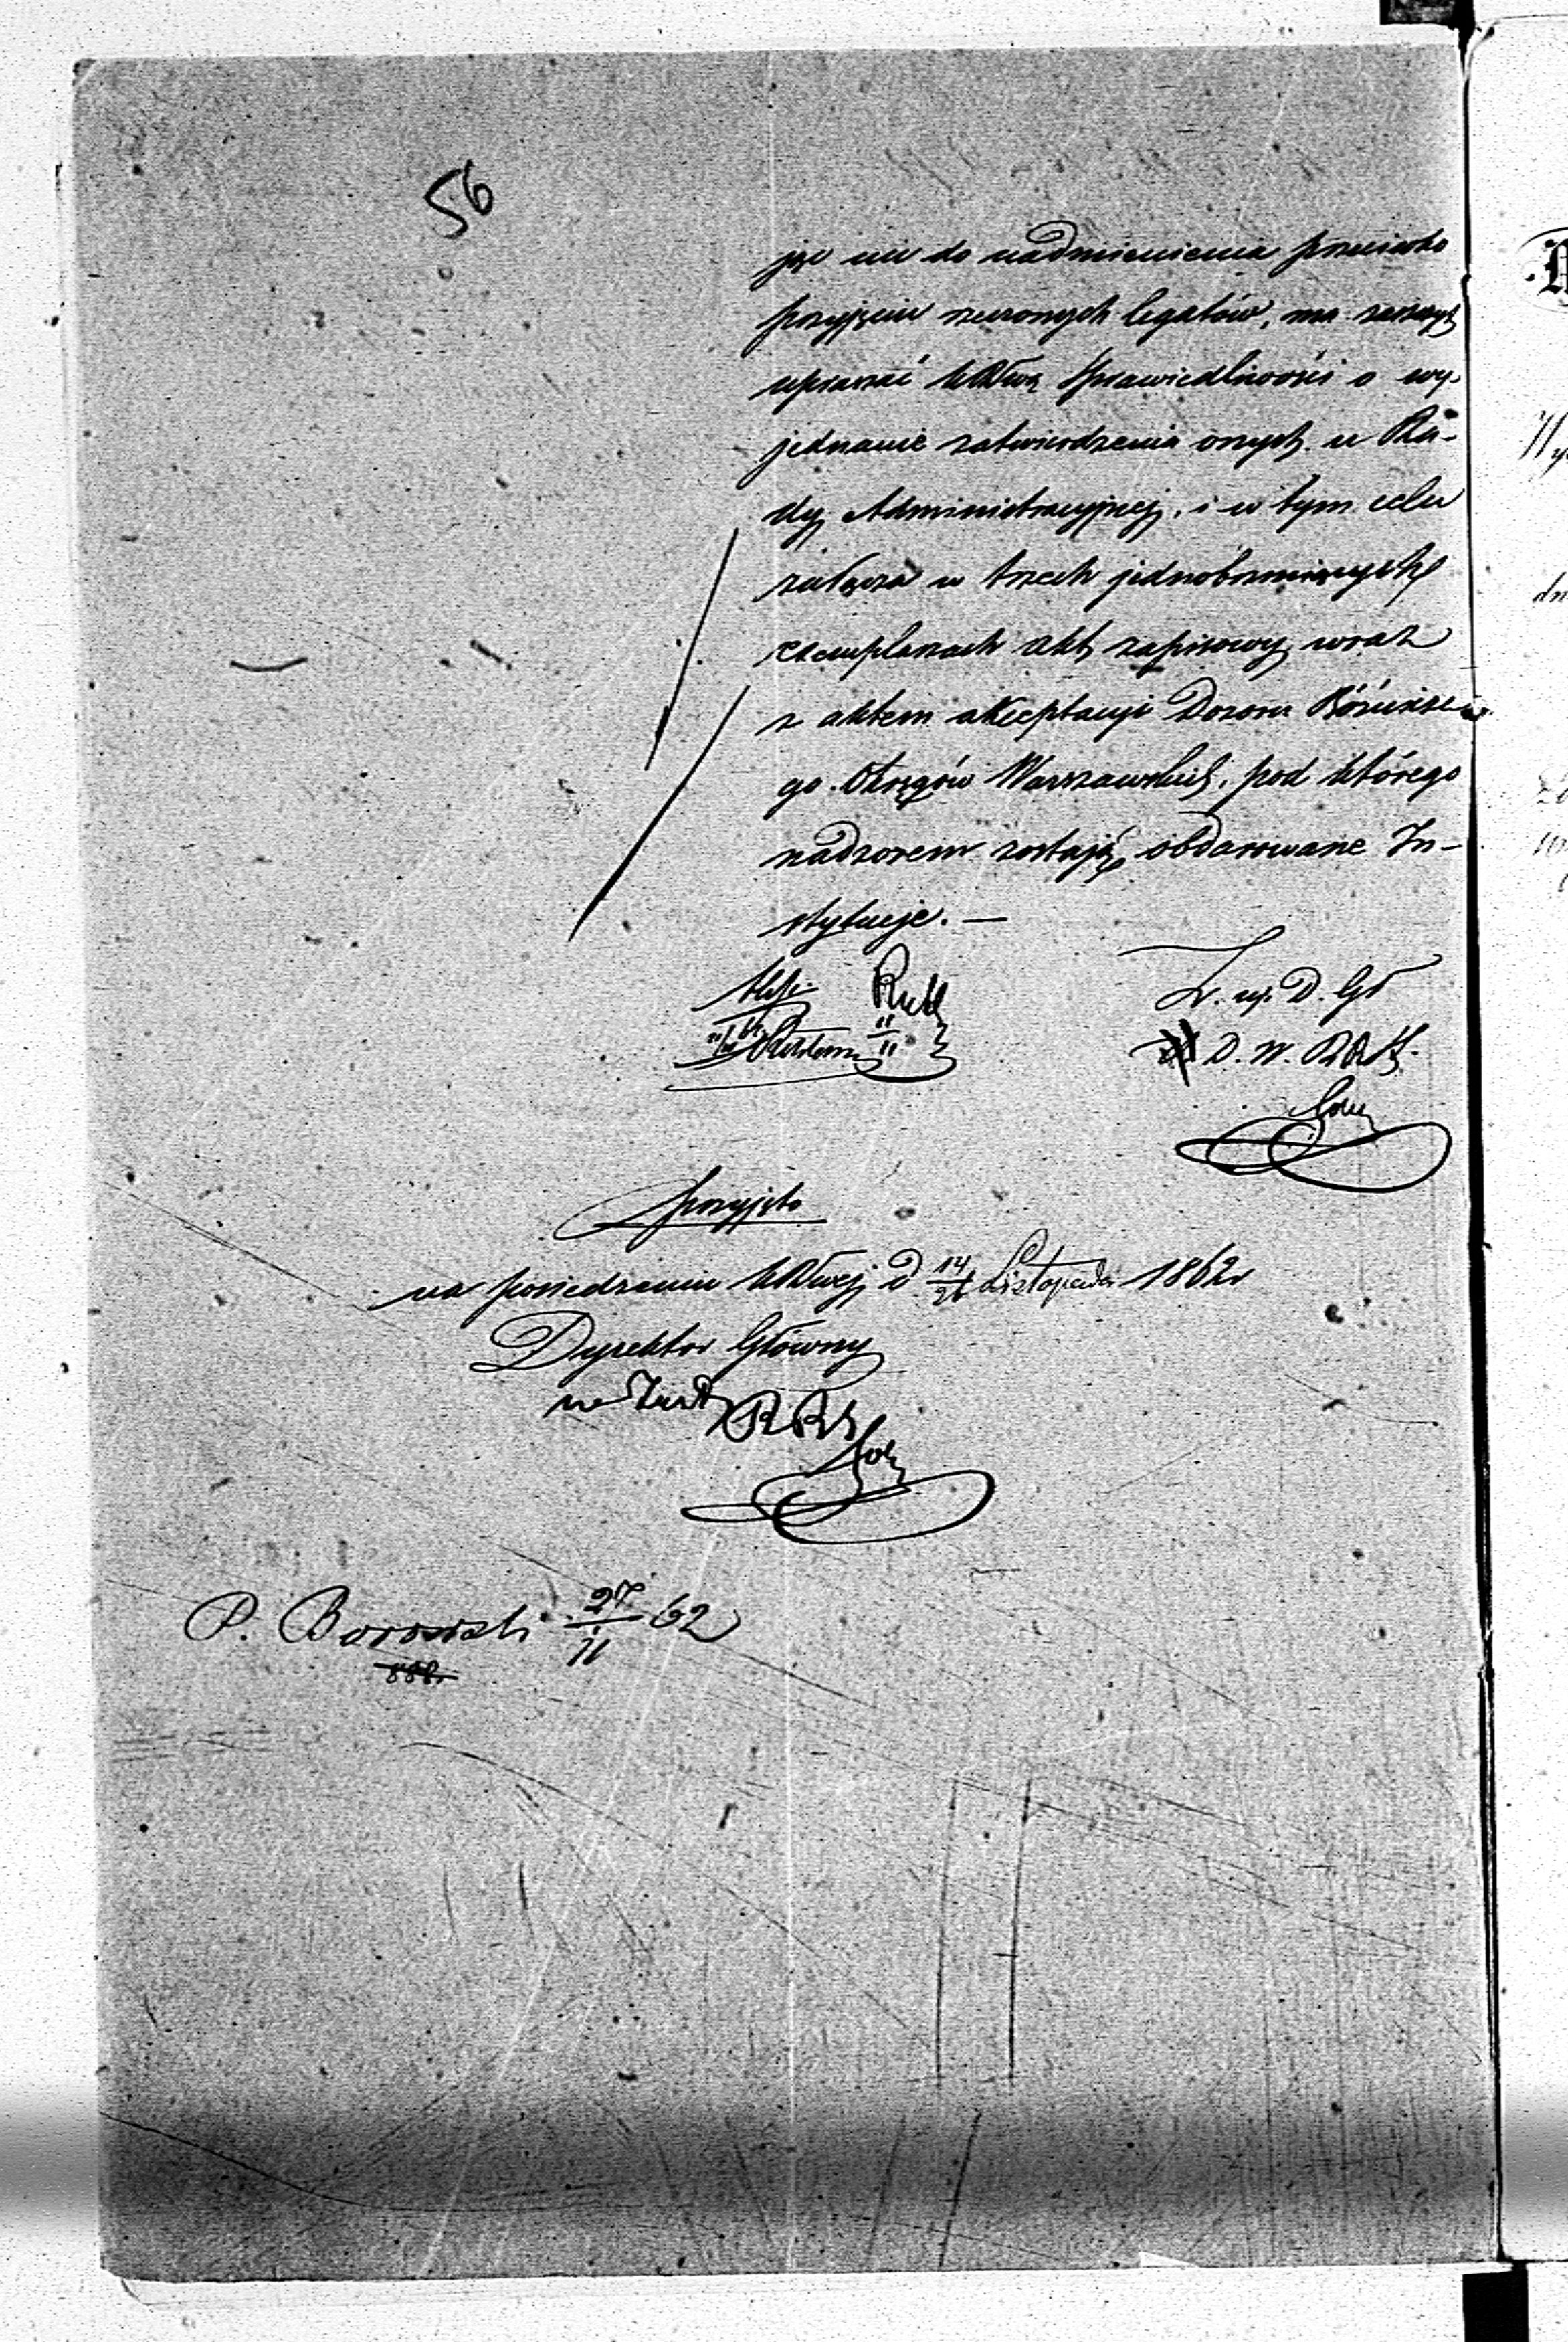 56
jąc nic do nadmienienia przeciwko
przyjęciu rzeczonych legatów, ma zaszczyt
upraszać KRząd Sprawiedliwości o wy-
jednanie zatwierdzenia onych u Ra-
dy Administracyjnej, i w tym celu
załącza w trzech jednobrzmiących
exemplarzach akt zapisowy wraz
z aktem akceptacji Dozoru Bóżnicze-
go Okręgów Warszawskich, pod którego
nadzorem zostają obdarowane In-
stytucje. —
Z. up. D. Gł
D. W.
przyjęto
na posiedzeniu d 14/26 Listopada 1862r
Dyrektor Główny
P. Borowski 27/11 62